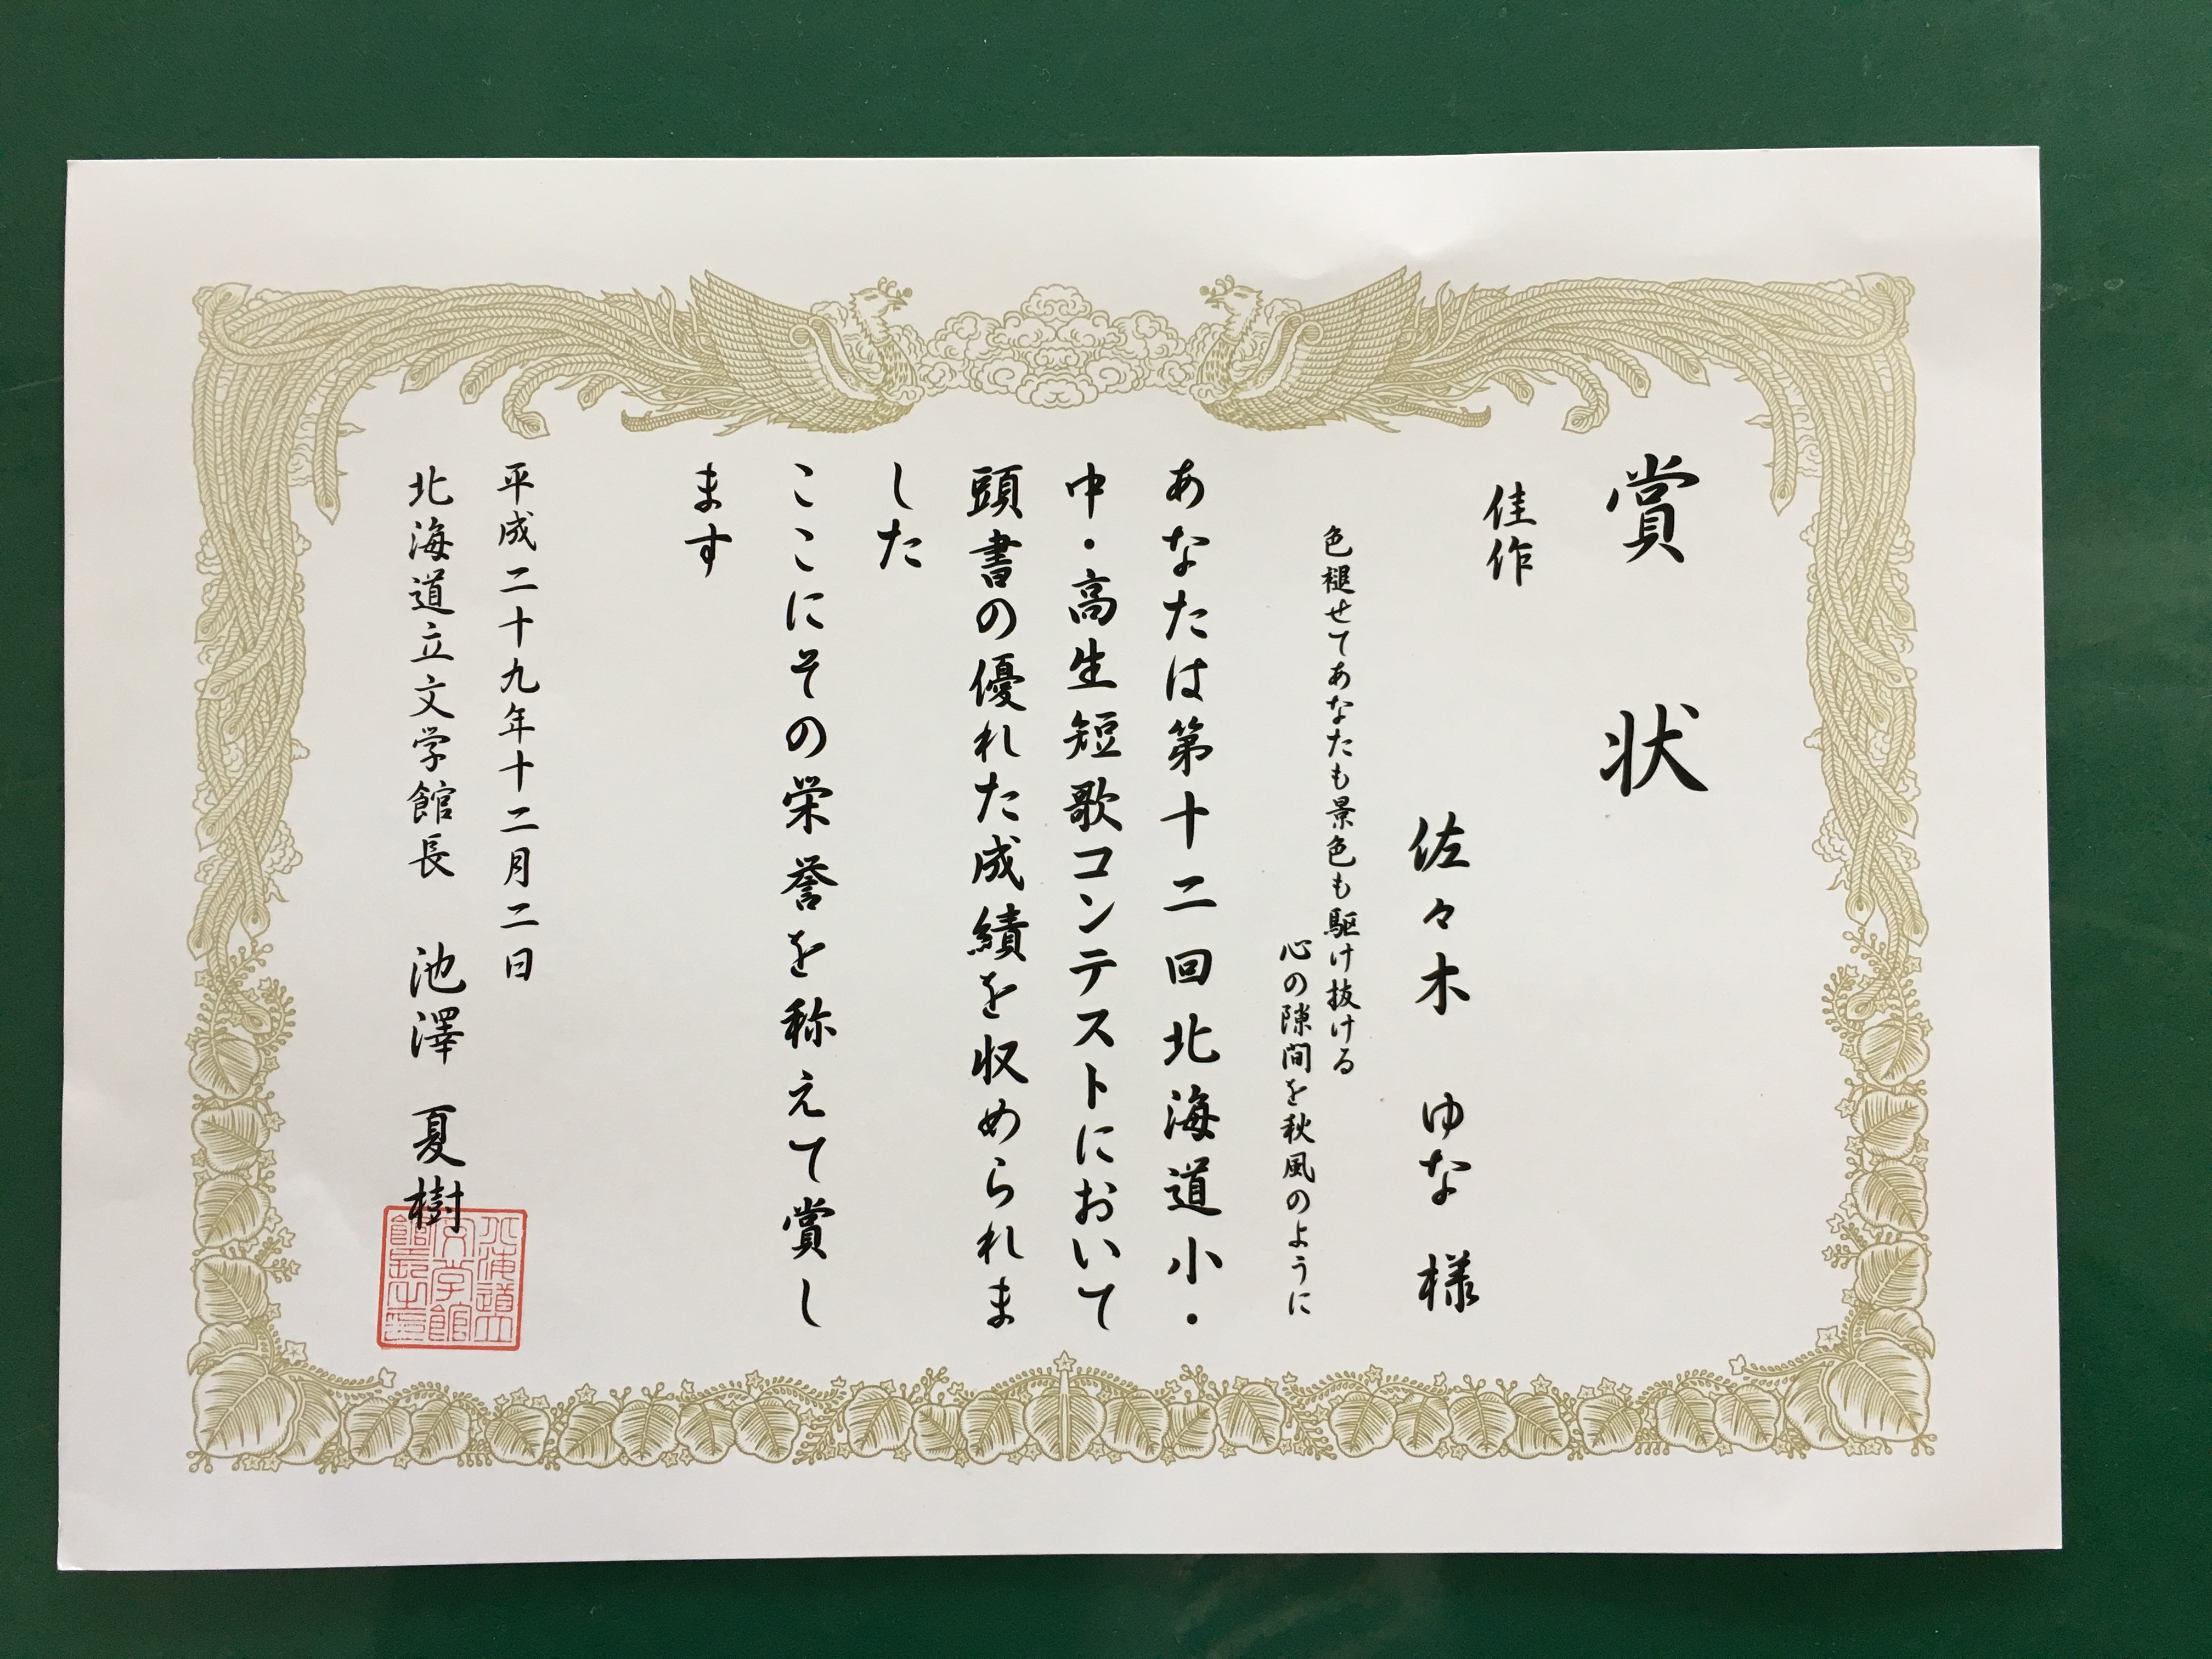 賞状
佳作
佐々木 ゆな 様
色褪せてあなたも景色も駆け抜ける
心の隙間を秋風のように
あなたは第十二回北海道小・
中・高生短歌コンテストにおいて
頭書の優れた成績を収められま
した
ここにその栄誉を称えて賞し
ます
平成二十九年十二月二日
北海道立文学館長 池澤 夏樹
北海道立
文学館